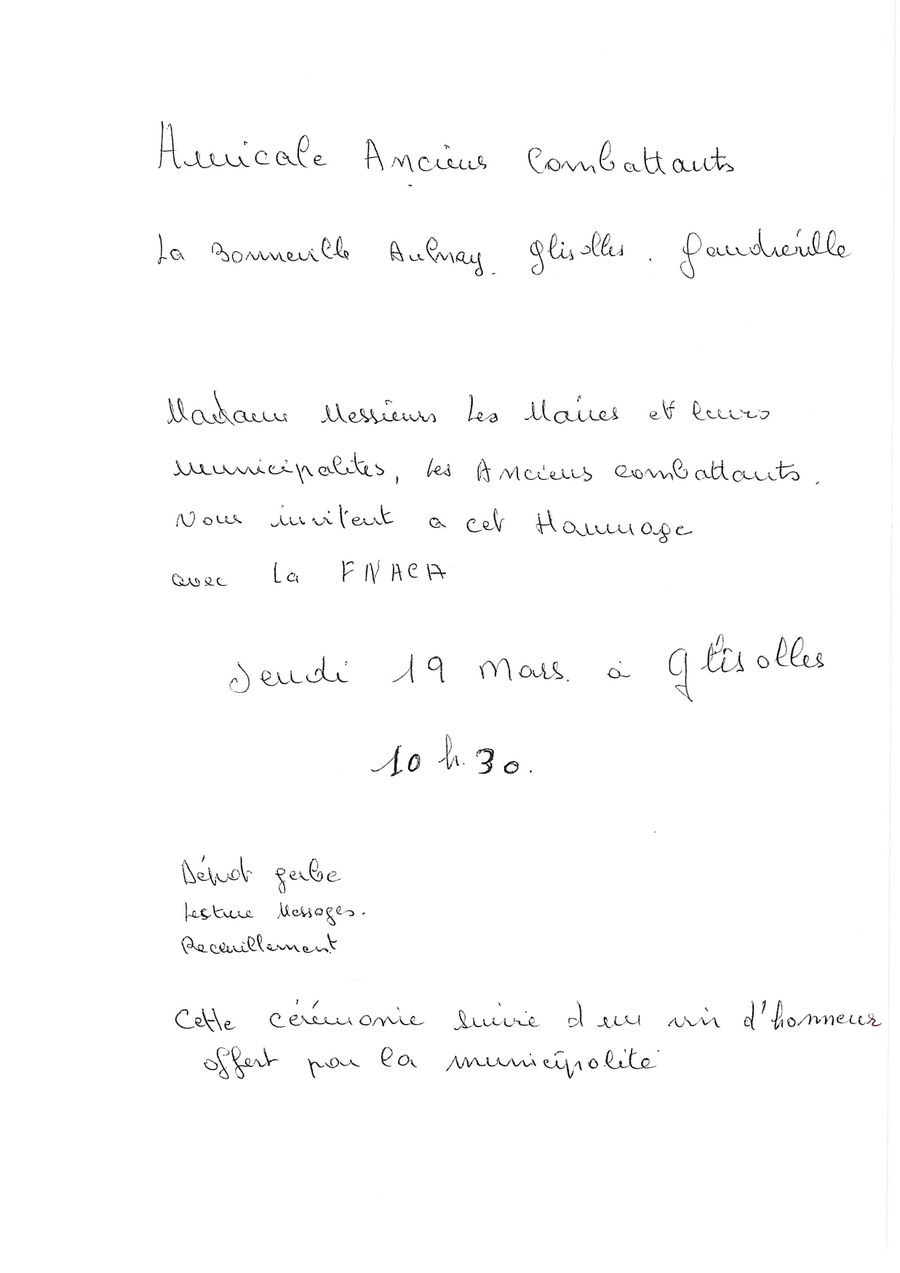 Amicale Anciens Combattants
La Bonneville Aulnay. Glisolles. Gaudreville
Madame Messieurs Les Maires et leurs
municipalites, les Anciens combattants.
Nous invitent a cet Hommage
avec La FNACA
Jeudi 19 Mars. à Glisolles
10 h. 30.
Dépot gerbe
Lecture Messages.
Receuillement
Cette cérémonie suivie d un vin d'honneur
offert par la municipalité